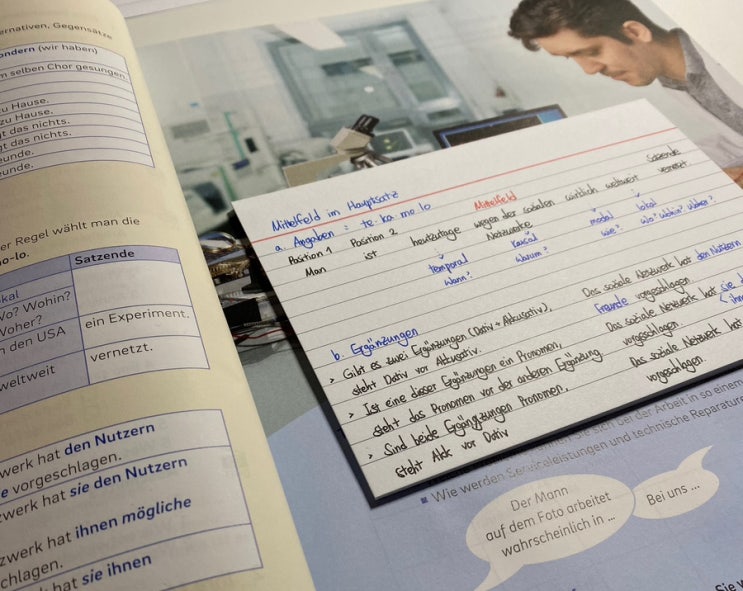 ernativen, Gegensätze
ondern (wir haben)
m selben Chor gesungen.
zu Hause.
zu Hause.
gt das nichts.
gt das nichts.
eunde.
eunde.
er Regel wählt man die
o-lo.
Satzende
kal
Wo? Wohin?
Woher?
n den USA
ein Experiment.
weltweit
vernetzt.
zwerk hat den Nutzern
e vorgeschlagen.
zwerk hat sie den Nutzern
zwerk hat ihnen mögliche
chlagen.
hat sie ihnen
Mittelfeld im Hauptsatz
a. Angaben : te. ka. mo. lo
Position 1 Position 2 Mittelfeld Satzende
Man ist heutzutage wegen der sozialen wirklich weltweit vernetzt
Netzwerke
temporal kausal modal lokal
wann? warum? wie? wo? wohin? woher?
b. Ergänzungen
> Gibt es zwei Ergänzungen (Dativ + Akkusativ), Das soziale Netzwerk hat den Nutzern
steht Dativ vor Akkusativ. Freunde vorgeschlagen
> Ist eine dieser Ergänzungen ein Pronomen, Das soziale Netzwerk hat sie d
steht das Pronomen vor der anderen Ergänzung vorgeschlagen
> Sind beide Ergänzungen Pronomen, Das soziale Netzwerk hat
steht Akk vor Dativ vorgeschlagen.
sie sich bei der Arbeit in so einem
Wie werden Serviceleistungen und technische Reparature
Der Mann
auf dem Foto arbeitet
wahrscheinlich in ...
Bei uns ...
Sie v